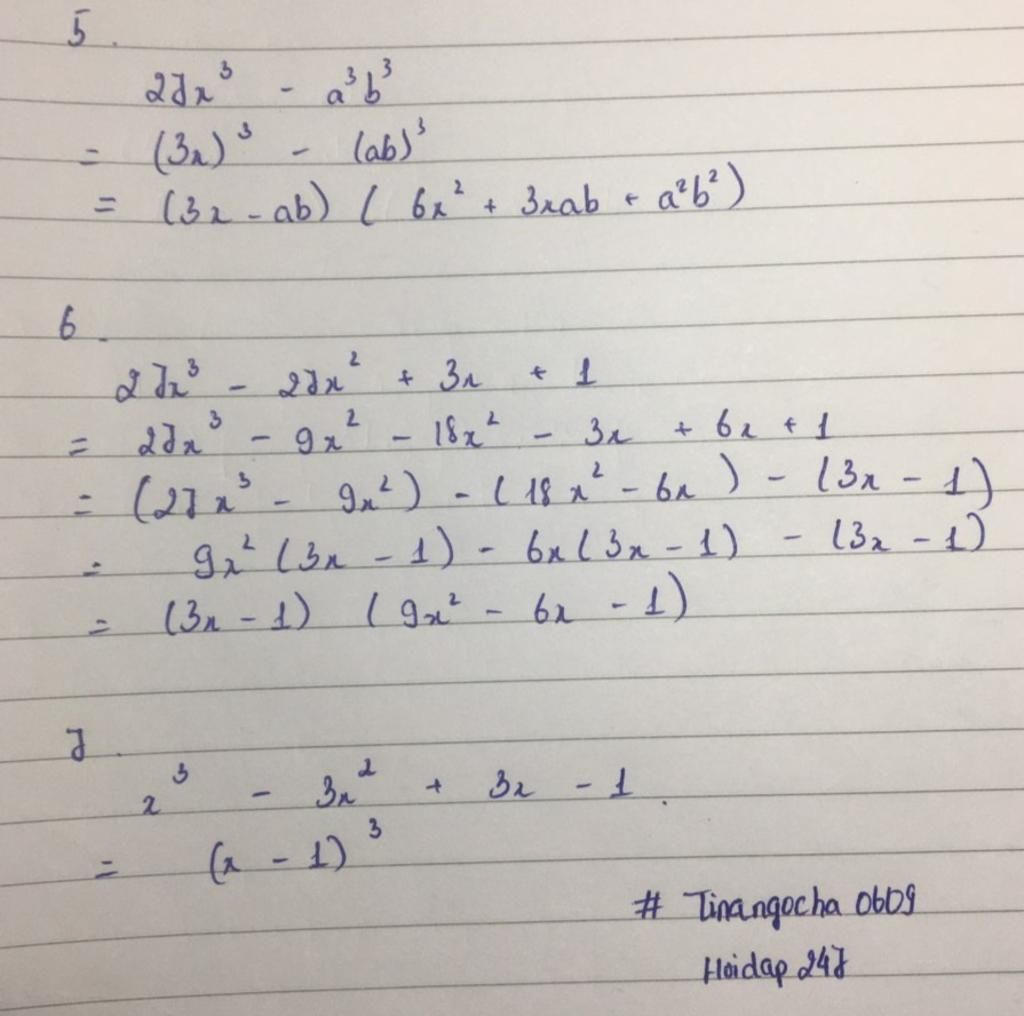 5.
27x³ - a³b³
= (3x)³ - (ab)³
= (3x - ab) ( 6x² + 3xab + a²b²)
6.
27x³ - 27x² + 3x + 1
= 27x³ - 9x² - 18x² - 3x + 6x + 1
= (27x³ - 9x²) - (18x² - 6x) - (3x - 1)
= 9x² (3x - 1) - 6x(3x - 1) - (3x - 1)
= (3x - 1) (9x² - 6x - 1)
7.
x³ - 3x² + 3x - 1.
= (x - 1)³
# Tinangocha 0609
Hoidap 247